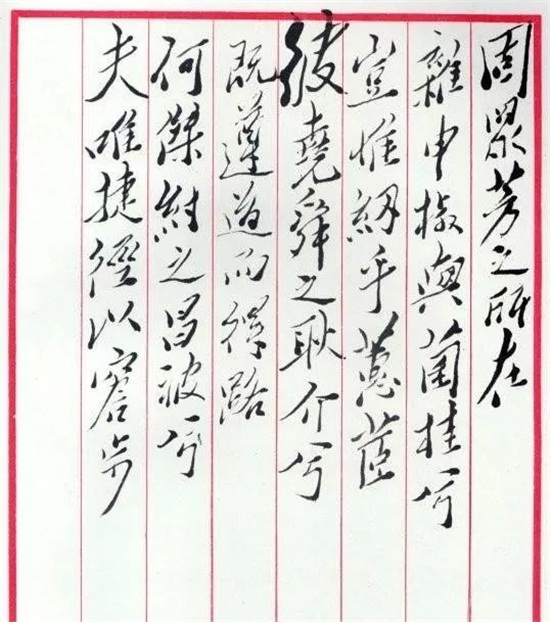 固眾芳之所在
雜申椒與菌桂兮
豈惟紉乎蕙茝
彼堯舜之耿介兮
既遵道而得路
何桀紂之昌披兮
夫唯捷徑以窘步